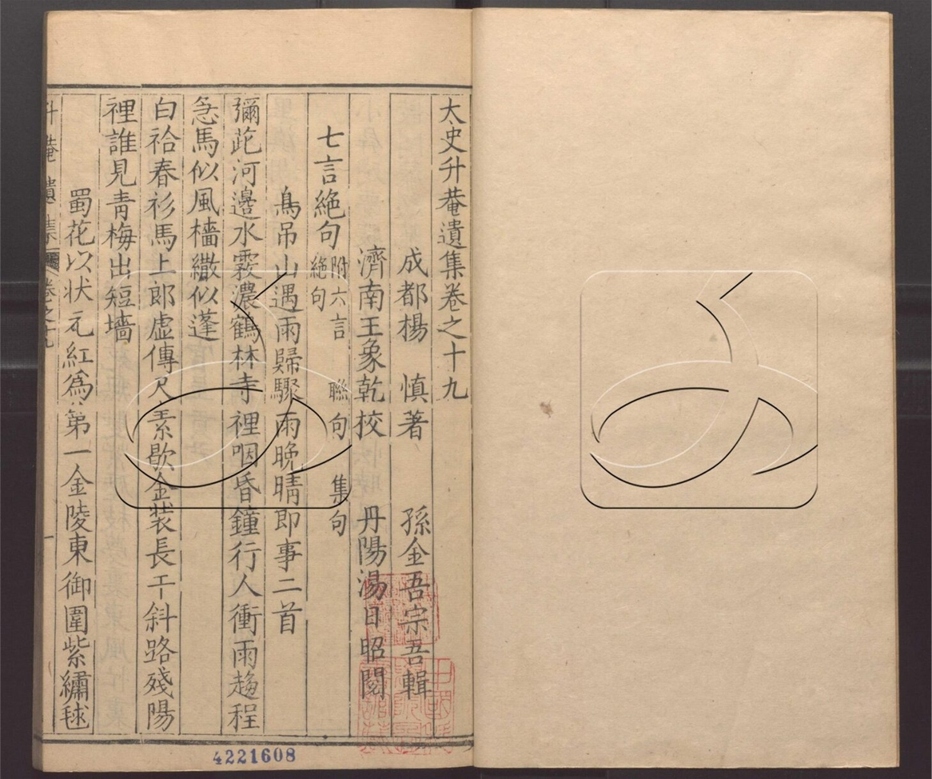 太史升菴遺集卷之十九
成都楊 慎著 孫金吾宗吾輯
濟南王象乾校 丹陽湯日昭閱
七言絶句 附六言 聯句 集句
絶句
鳥吊山遇雨歸驟雨晚晴即事二首
彌茈河邊水霧濃鶴林寺裡咽昏鐘行人衝雨趨程
急馬似風檣繖似蓬
白袷春衫馬上郎虛傳尺素歇金装長干斜路殘陽
裡誰見青梅出短墻
蜀花以状元紅為第一金陵東御圍紫繡毬
升菴遺集 卷之十九 一
4221608